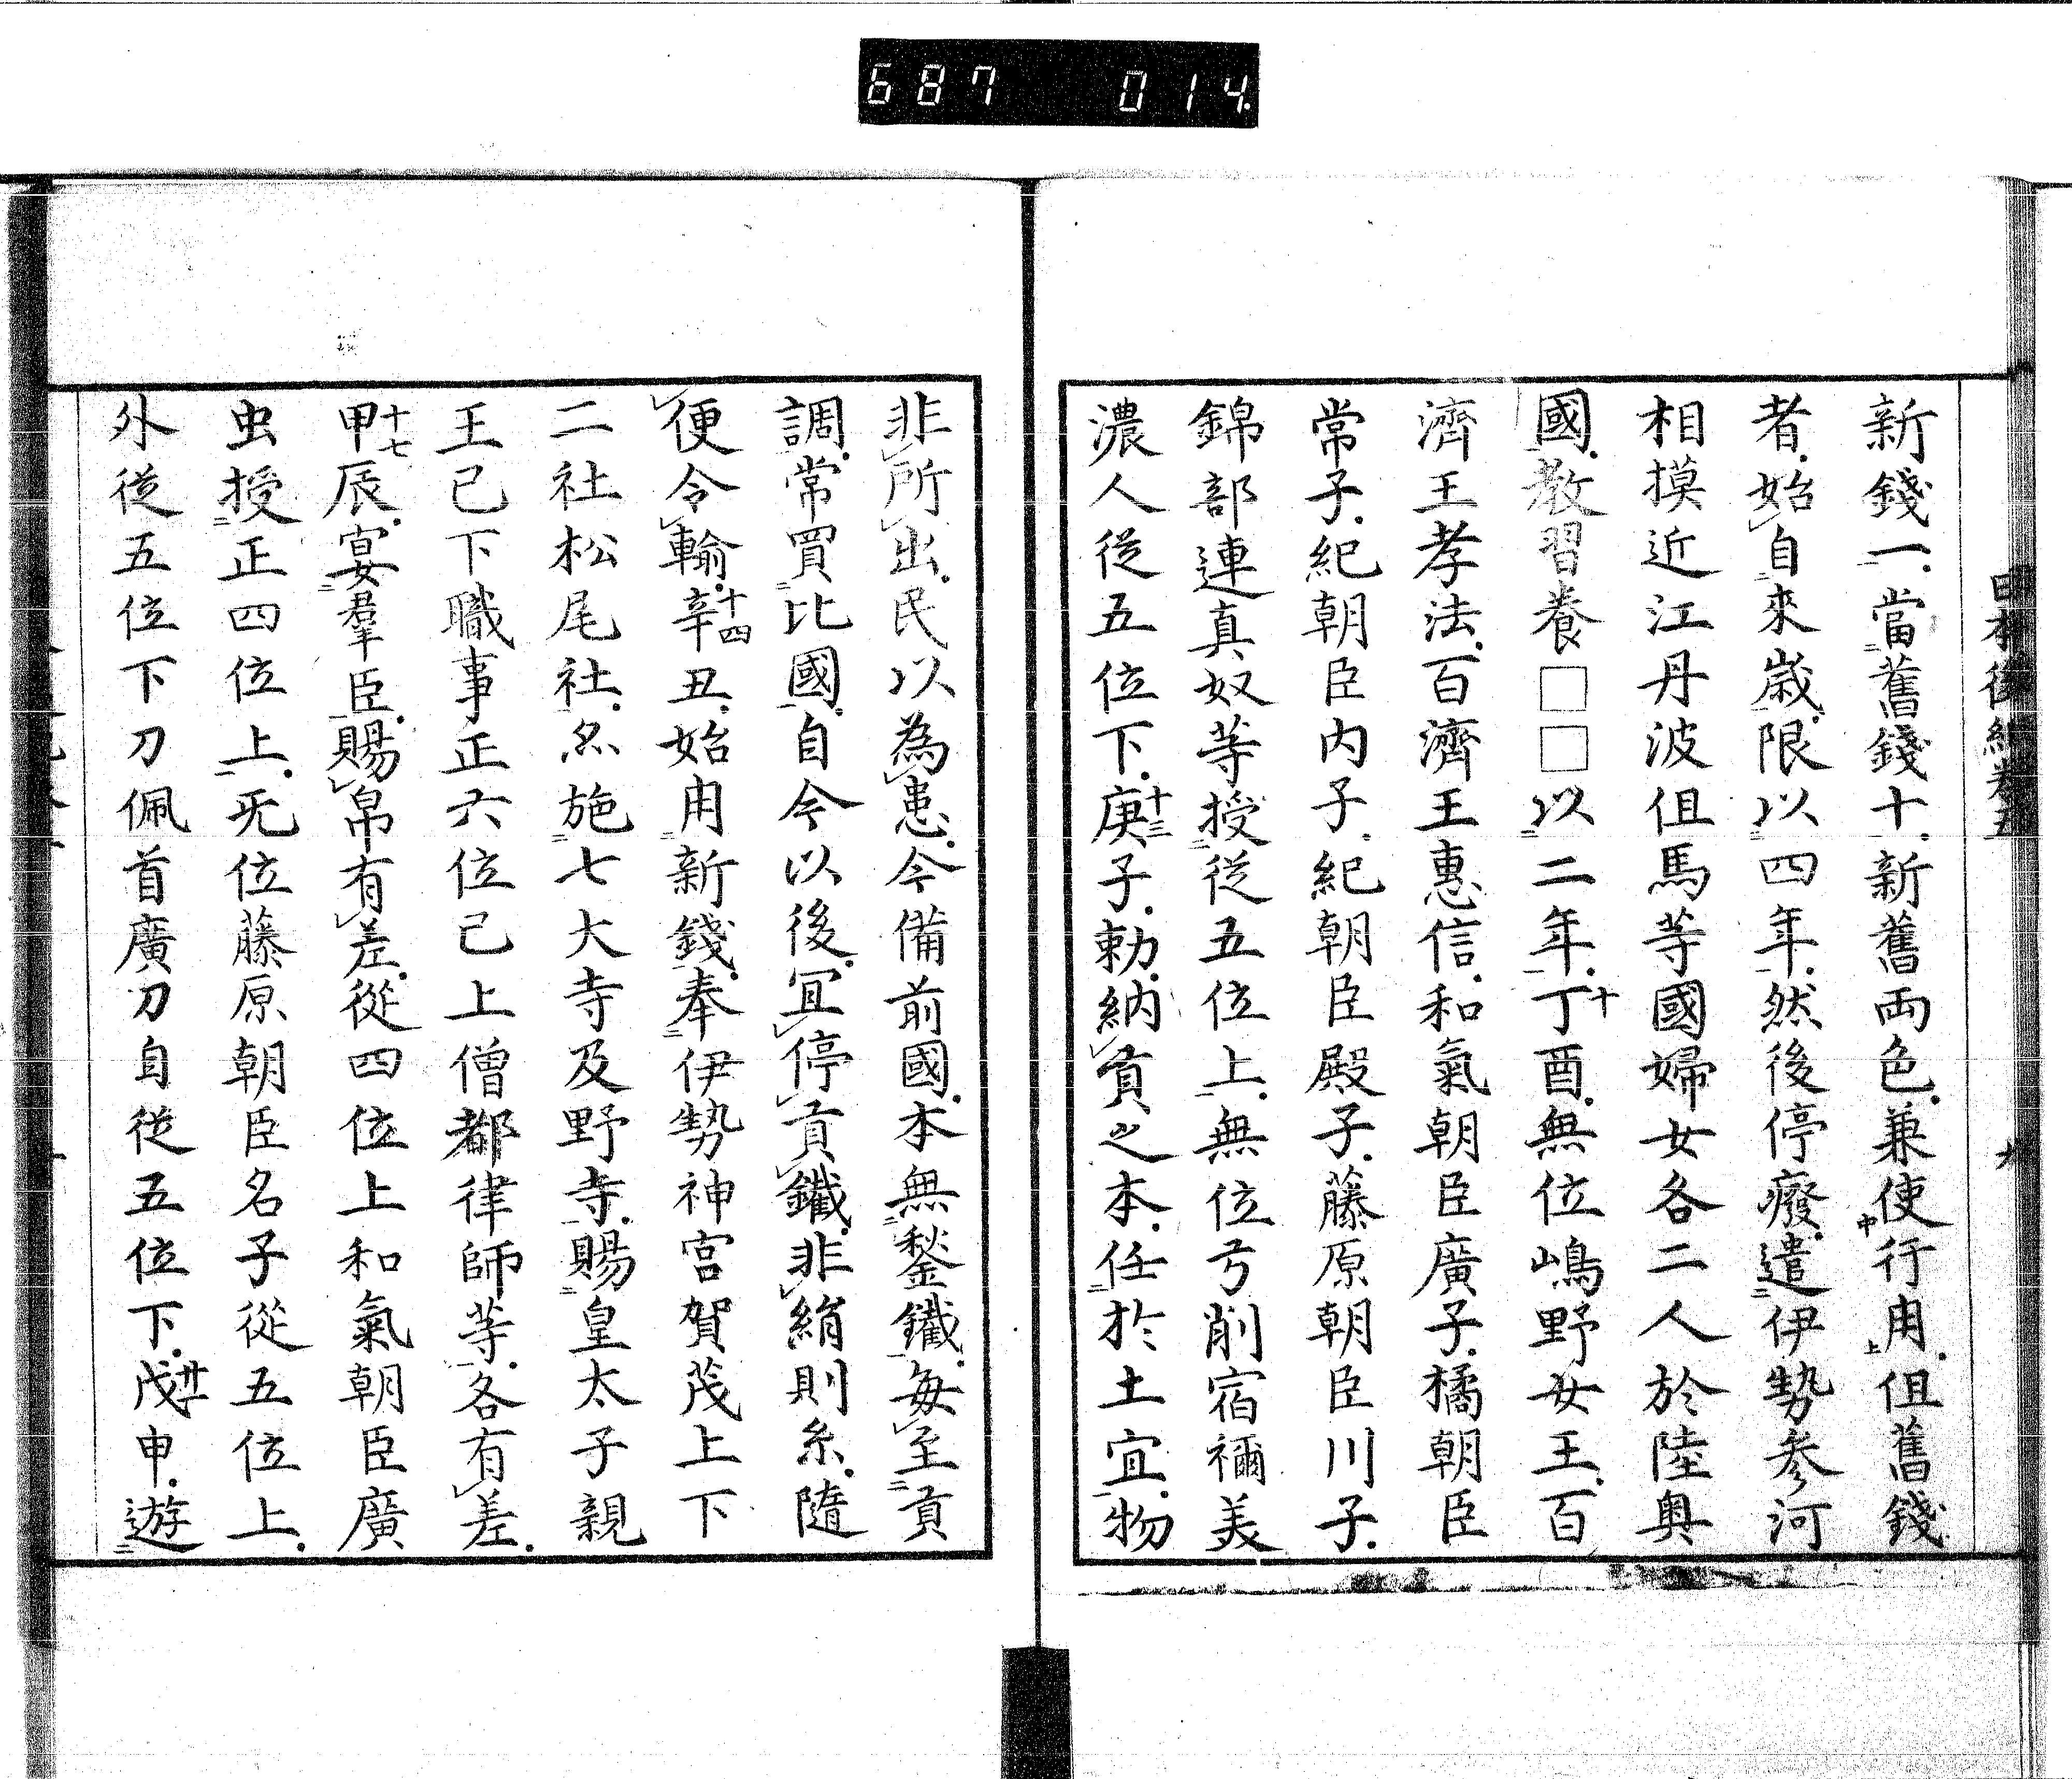 687 014
日本後紀卷五 九
新錢一當舊錢十新舊両色兼使行用但舊錢
者始自來歳限以四年然後停廢遣伊勢参河
相摸近江丹波但馬等國婦女各二人於陸奥
國教習養□□以二年丁酉無位嶋野女王百
濟王孝法百濟王惠信和氣朝臣廣子橘朝臣
常子紀朝臣内子紀朝臣殿子藤原朝臣川子
錦部連真奴等授従五位上無位弓削宿禰美
濃人従五位下庚子勅納貢之本任於土宜物
非所出民以為患今備前國本無鍫鐵毎至貢
調常買比國自今以後宜停貢鐵非絹則糸隨
便令輸辛丑始用新錢奉伊勢神宮賀茂上下
二社松尾社亦施七大寺及野寺賜皇太子親
王已下職事正六位已上僧都律師等各有差
甲辰宴羣臣賜帛有差從四位上和氣朝臣廣
虫授正四位上无位藤原朝臣名子從五位上
外従五位下刀佩首廣刀自従五位下戊申遊